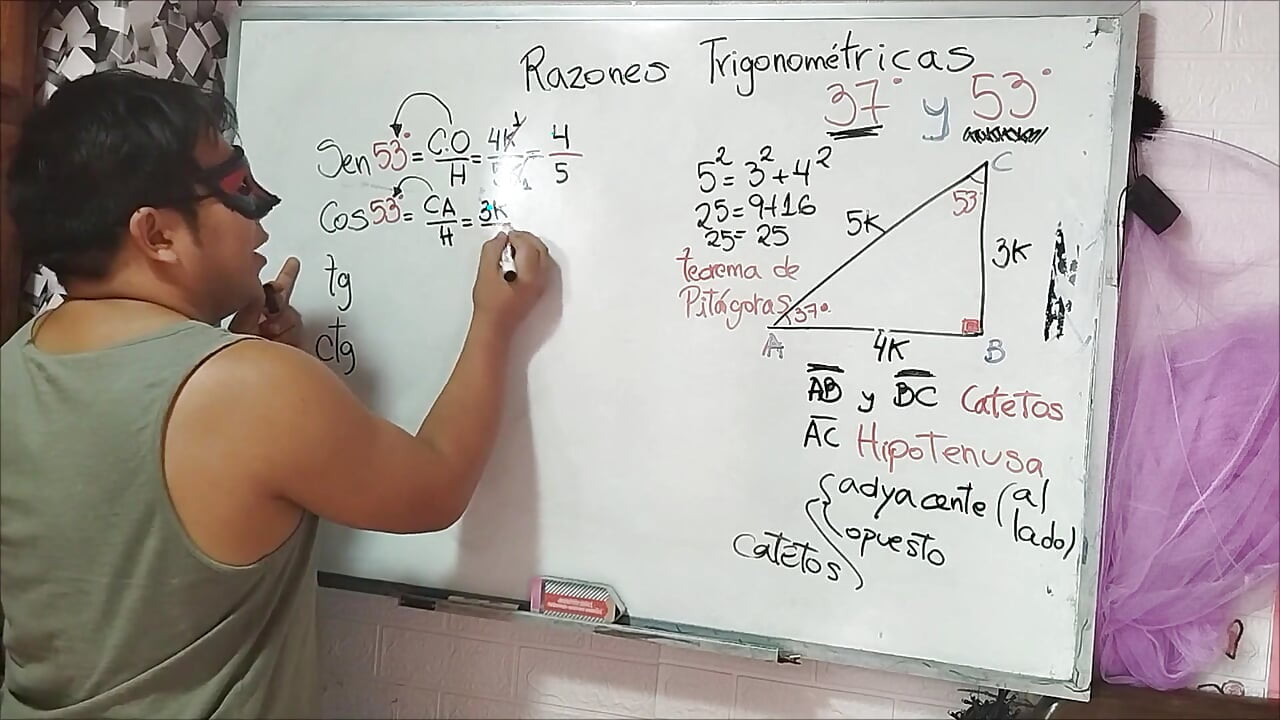 Razones Trigonométricas
37° y 53°
Sen 53° = C.O/H = 4K/5K = 4/5
Cos 53° = CA/H = 3K
tg
ctg
5² = 3² + 4²
25 = 9+16
25 = 25
teorema de
Pitágoras
C
53
5K
3K
37°
A
4K
B
AB y BC Catetos
AC Hipotenusa
Catetos
adyacente (al lado)
opuesto